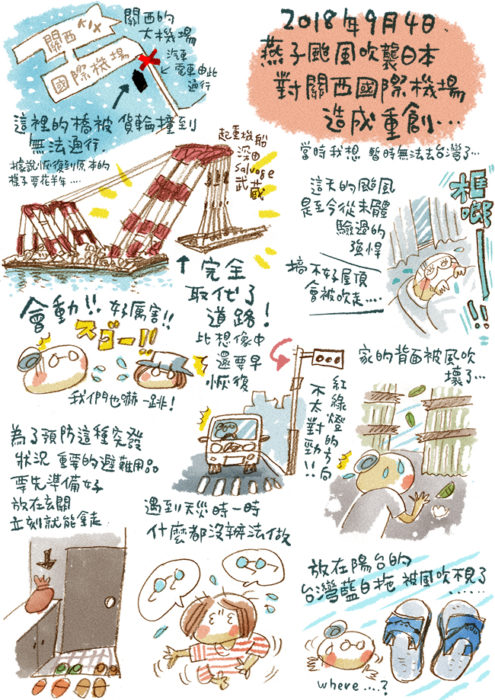 2018年9月4日、
燕子颱風吹襲日本
對關西國際機場
造成重創…
關西 KIX
國際機場
關西的
大機場
汽車
電車由此
通行
這裡的橋被貨輪撞到
無法通行.
據說恢復到原本的
樣子要花半年……
起重機船
深田
Salvage
武藏
當時我想 暫時無法去台灣了…
這次的颱風
是至今從未體
驗過的
強悍
搞不好屋頂
會被吹走……
框啷——!!
↑完全
取代了
道路!
比想像中
還要早
恢復
會動!! 好厲害!!
スゴー!!
我們也嚇一跳!
紅綠燈的方向
不太對勁!!
家的背面被風吹
壞了…
為了預防這種突發
狀況 重要的避難用品
要先準備好
放在玄關
立刻就能拿走
遇到天災時一時
什麼都沒辦法做
放在陽台的
台灣藍白拖 被風吹不見了
……
where……?